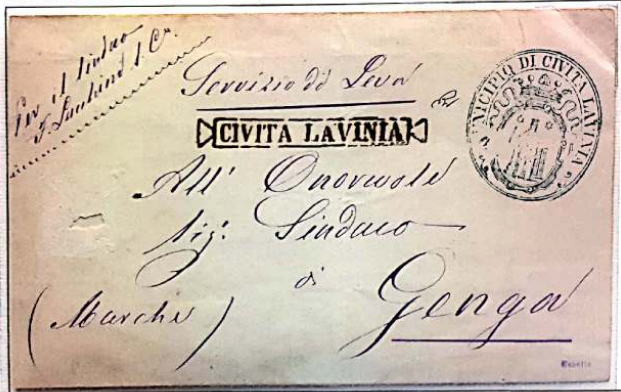 Per il Sindaco
Servizio di Leva
CIVITA LAVINIA
MUNICIPIO DI CIVITA LAVINIA
All' Onorevole
Sig: Sindaco
di
Genga
(Marche)